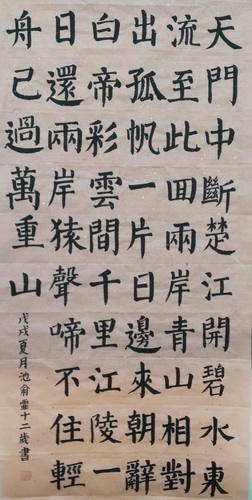 天門中斷楚江開碧水東
流至此回兩岸青山相對
出孤帆一片日邊來朝辭
白帝彩雲間千里江陵一
日還兩岸猿聲啼不住輕
舟已過萬重山
戊戌夏月池俞靈十二歲書